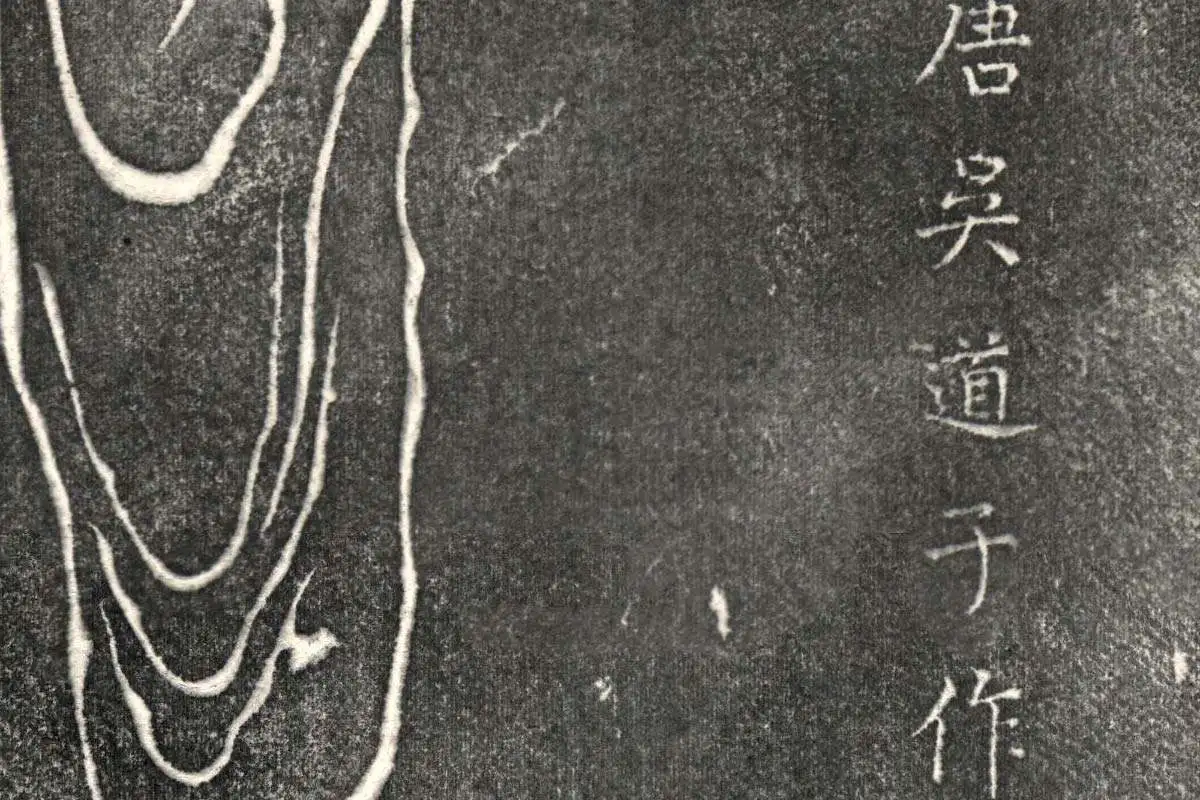 唐吳道子作